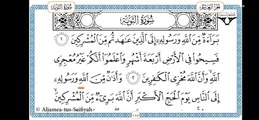 سُورَةُ التَّوْبَةِ
بَرَاءَةٌ مِّنَ اللَّهِ وَرَسُولِهِ إِلَى الَّذِينَ عَاهَدتُّم مِّنَ الْمُشْرِكِينَ ١
فَسِيحُوا فِي الْأَرْضِ أَرْبَعَةَ أَشْهُرٍ وَاعْلَمُوا أَنَّكُمْ غَيْرُ مُعْجِزِي
اللَّهِ وَأَنَّ اللَّهَ مُخْزِي الْكَافِرِينَ ٢ وَأَذَانٌ مِّنَ اللَّهِ وَرَسُولِهِ
إِلَى النَّاسِ يَوْمَ الْحَجِّ الْأَكْبَرِ أَنَّ اللَّهَ بَرِيءٌ مِّنَ الْمُشْرِكِينَ
Aljamea-tus-Saifiyah